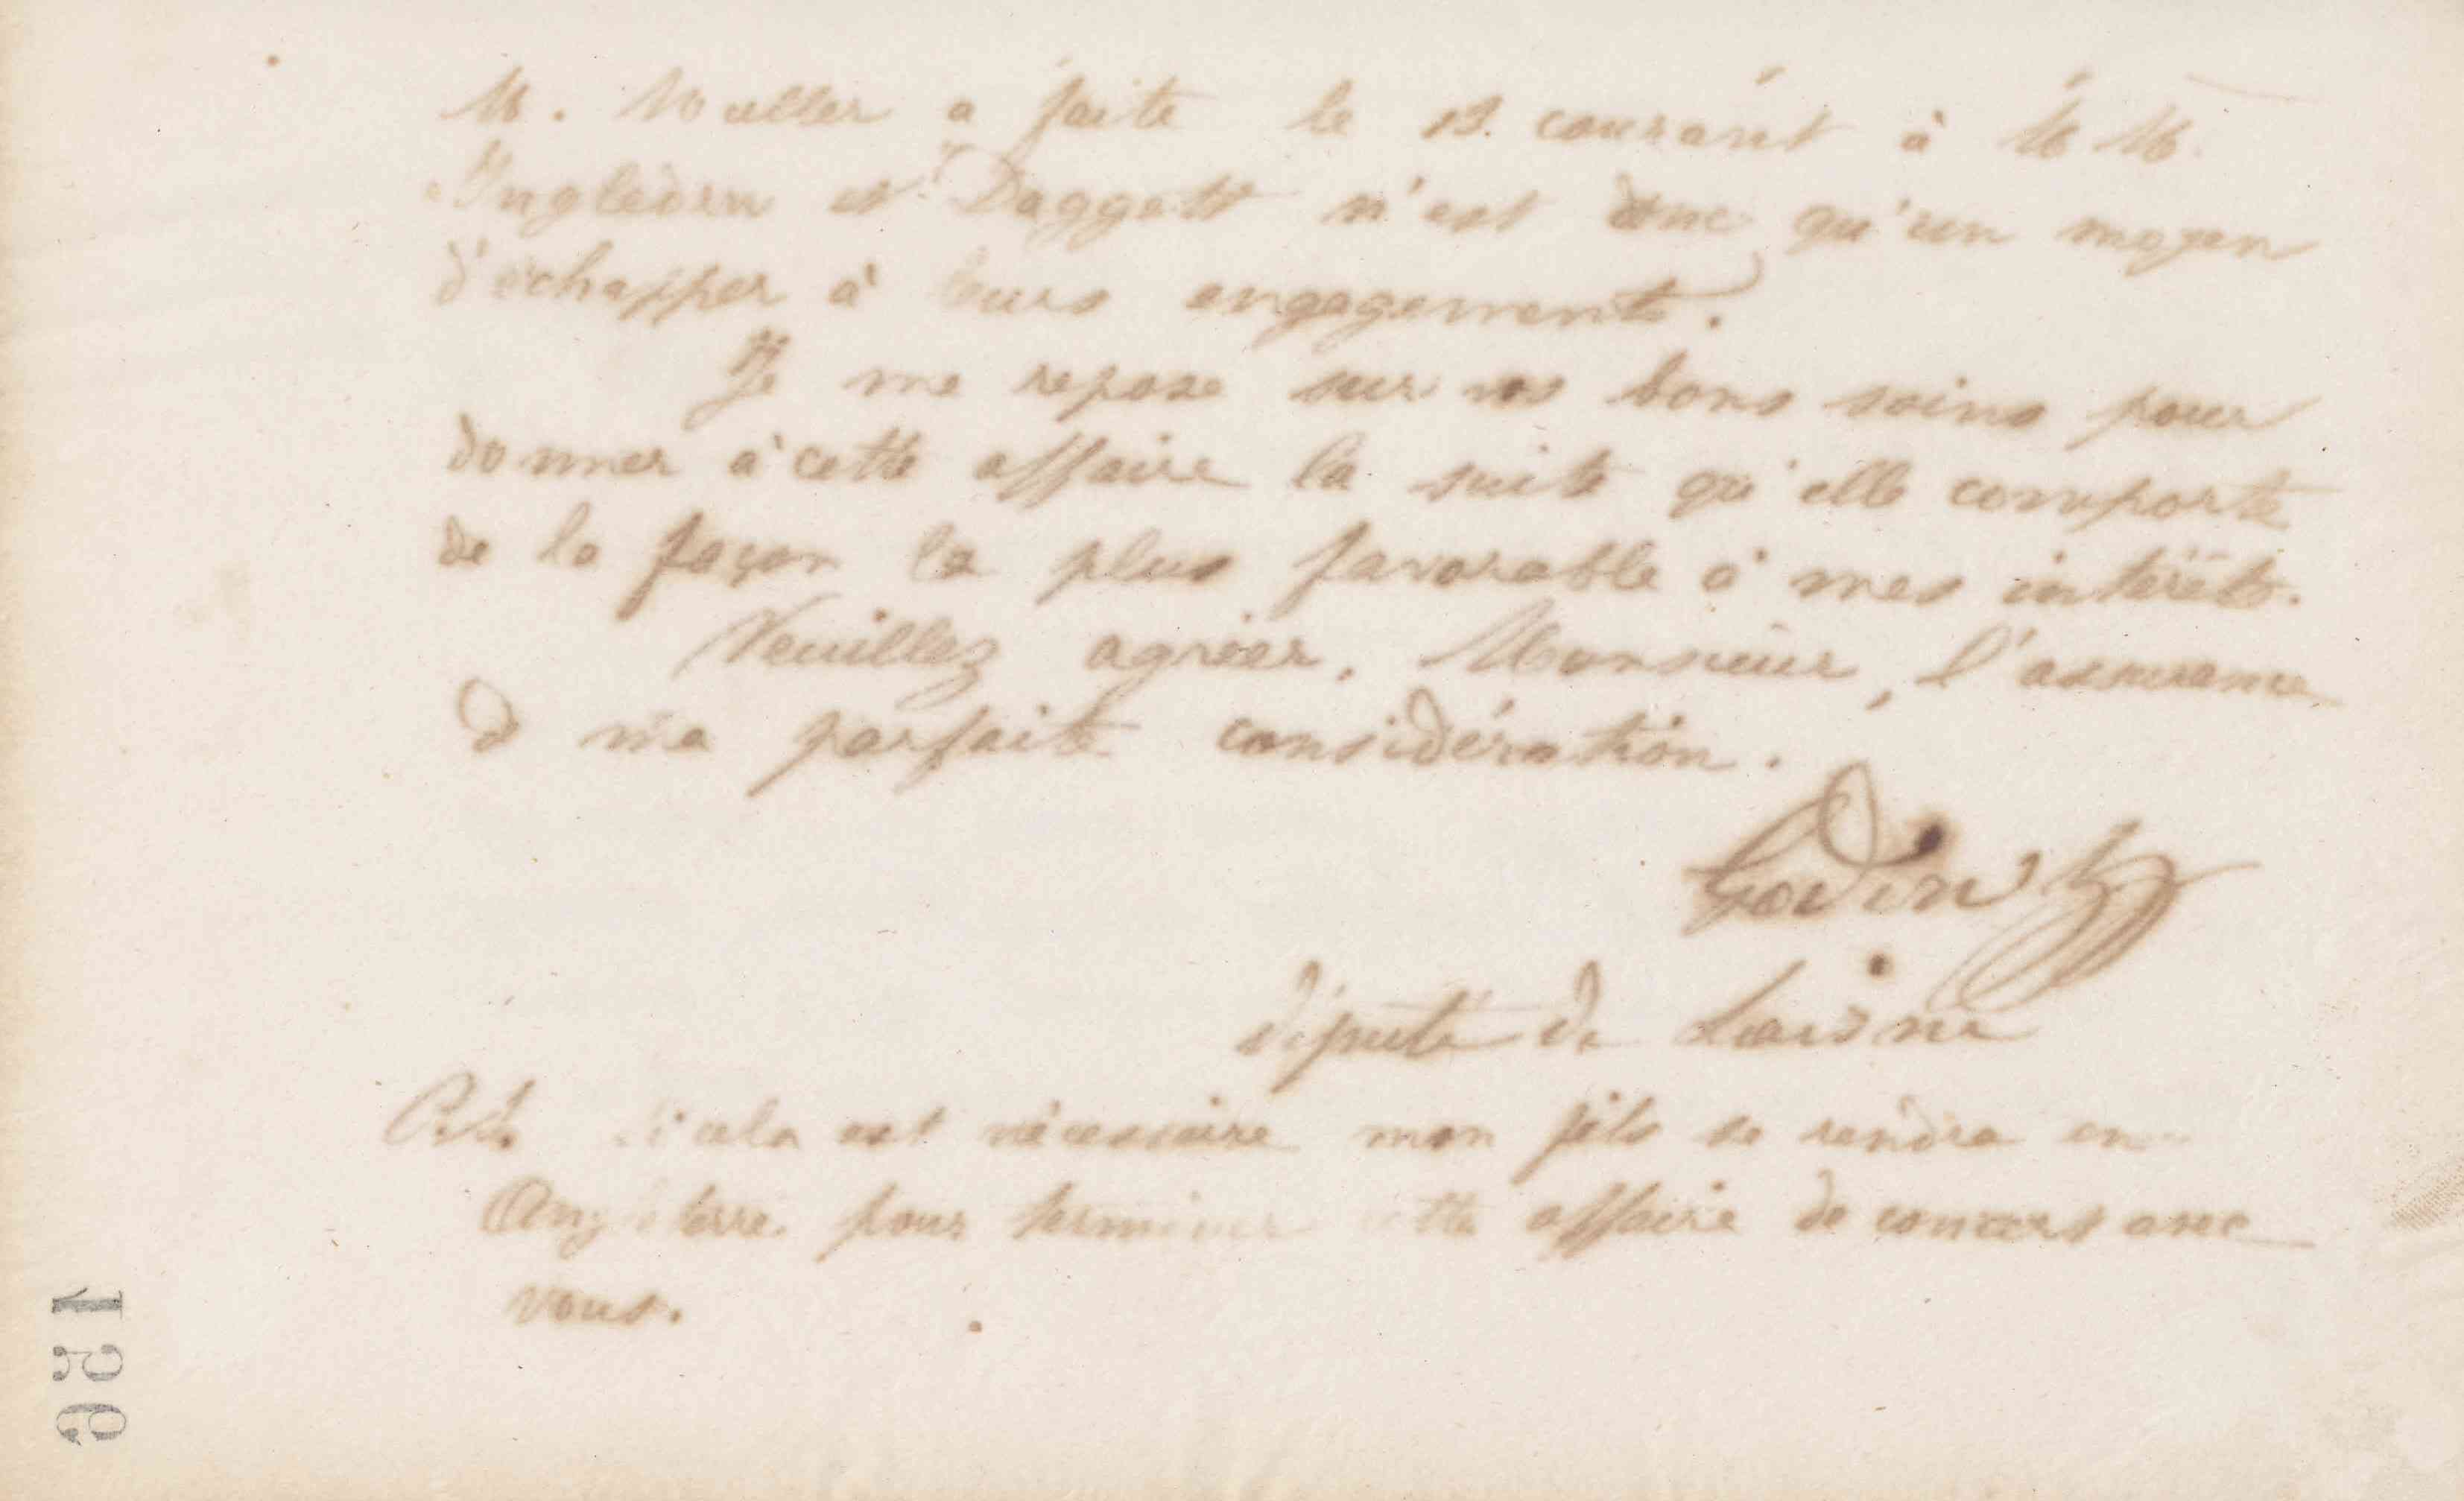 M. Muller a faite le 13. courant à M M.
Ingledew et Daggett n'est donc qu'un moyen
d'échapper à leurs engagements.
Je me repose sur vos bons soins pour
donner à cette affaire la suite qu'elle comporte
de la façon la plus favorable à mes intérêts.
Veuillez agréer, Monsieur, l'assurance
de ma parfaite considération.
Godin
député de L'aisne
P.S. Si cela est nécessaire mon fils se rendra en
Angleterre pour terminer cette affaire de concert avec
vous.
156